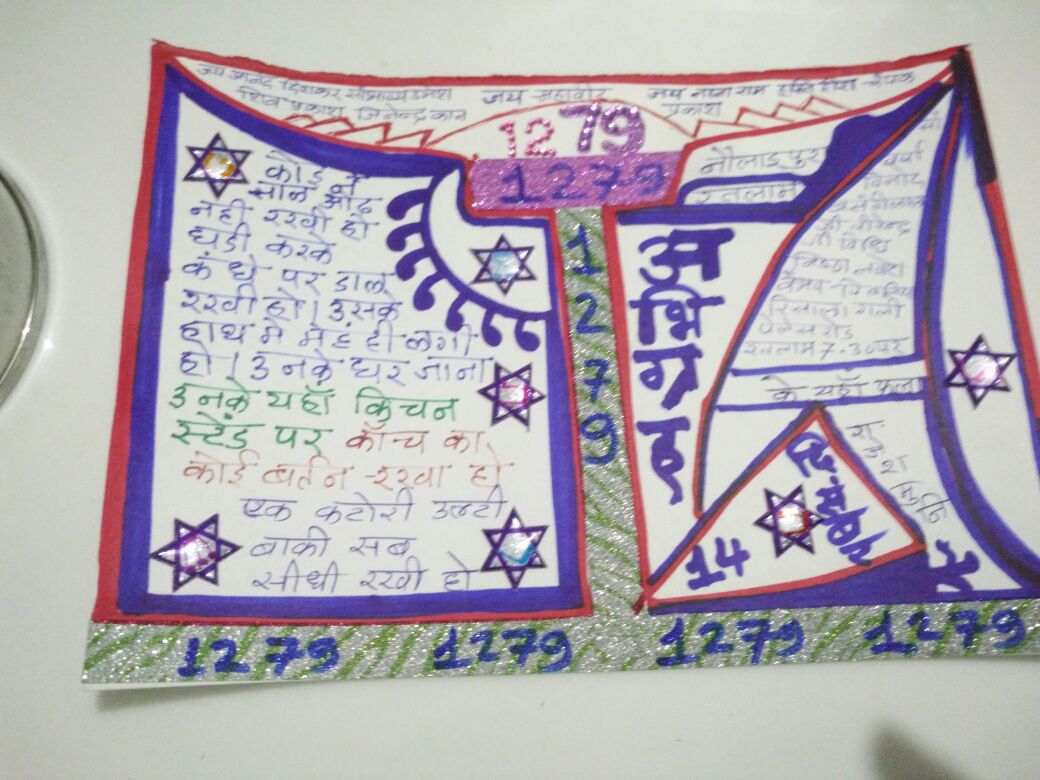 जय आनंद दिवाकर सौभाग्य उमेश
शिव प्रकाश जिनेन्द्र कान
जय महावीर
जय नाना राम
प्रकाश
1279
1279
कोई भी
साल ओढ़
नही रखी हो
घड़ी करके
कंधे पर डाल
रखी हो। उसके
हाथ में मेहंदी लगी
हो। उनके घर जाना
उनके यहाँ किचन
स्टेंड पर काँच का
कोई बर्तन रखा हो
एक कटोरी उल्टी
बाकी सब
सीधी रखी हो
1279
अभिग्रह
नौलाइ पुरा
रतलाम
वर्षा
विनोद
जी वीरेन्द्र
जी
वैभव
गली
पेलेस रोड
रतलाम 7.30 पर
के यहाँ फला
14
दिसंबर
1279 1279 1279 1279